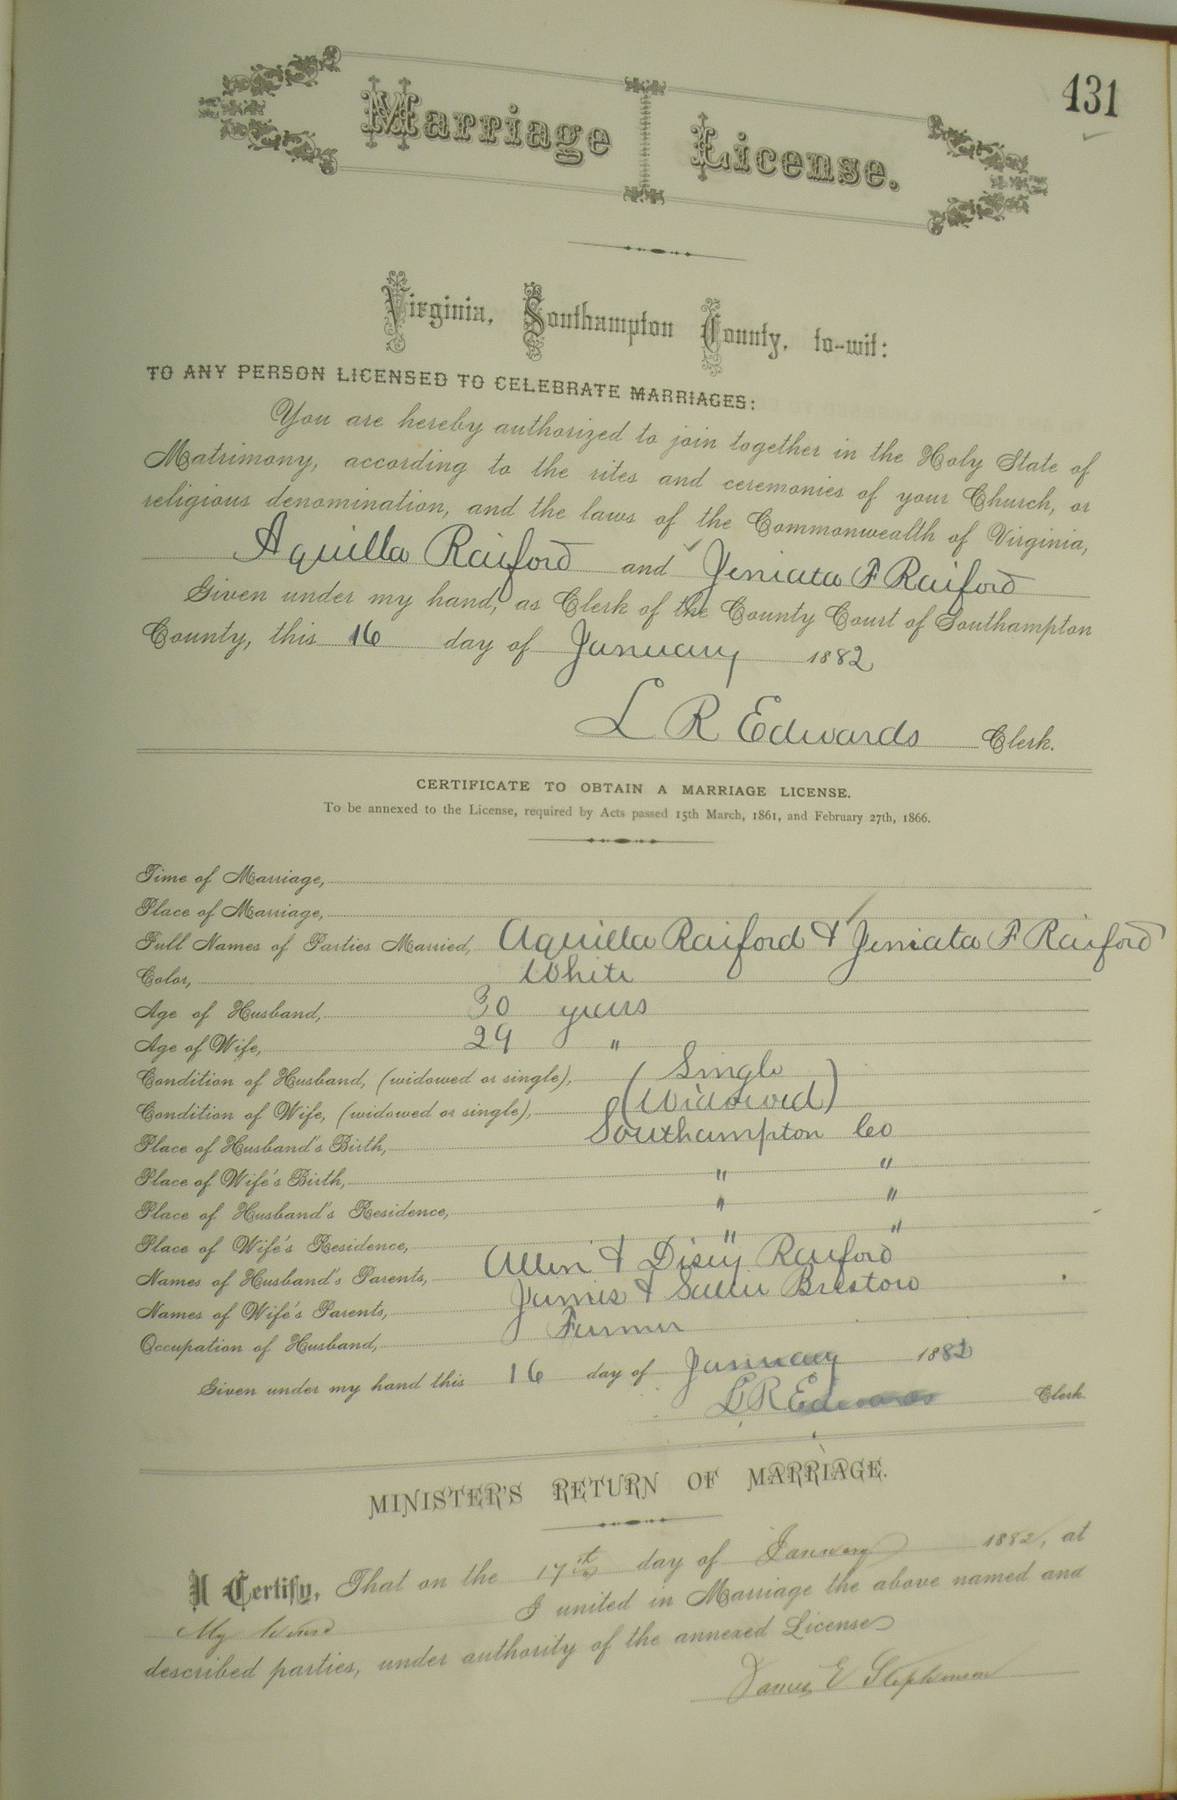 431
Marriage License.
Virginia, Southampton County, to-wit:
TO ANY PERSON LICENSED TO CELEBRATE MARRIAGES:
You are hereby authorized to join together in the Holy State of
Matrimony, according to the rites and ceremonies of your Church, or
religious denomination, and the laws of the Commonwealth of Virginia,
Aquilla Raiford and Jeniata F Raiford
Given under my hand, as Clerk of the County Court of Southampton
County, this 16 day of January 1882
L R Edwards Clerk.
CERTIFICATE TO OBTAIN A MARRIAGE LICENSE.
To be annexed to the License, required by Acts passed 15th March, 1861, and February 27th, 1866.
Time of Marriage,
Place of Marriage,
Full Names of Parties Married, Aquilla Raiford & Jeniata F Raiford
Color, White
Age of Husband, 30 years
Age of Wife, 29 "
Condition of Husband, (widowed or single), Single
Condition of Wife, (widowed or single), (Widowed)
Place of Husband's Birth, Southampton Co
Place of Wife's Birth, " "
Place of Husband's Residence, " "
Place of Wife's Residence, " "
Names of Husband's Parents, Allen & Raiford
Names of Wife's Parents, James & Sallie
Occupation of Husband, Farmer
Given under my hand this 16 day of January 1882
L R Edwards Clerk
MINISTER'S RETURN OF MARRIAGE.
I Certify, That on the 17th day of January 1882, at
My I united in Marriage the above named and
described parties, under authority of the annexed License
James E Stephenson